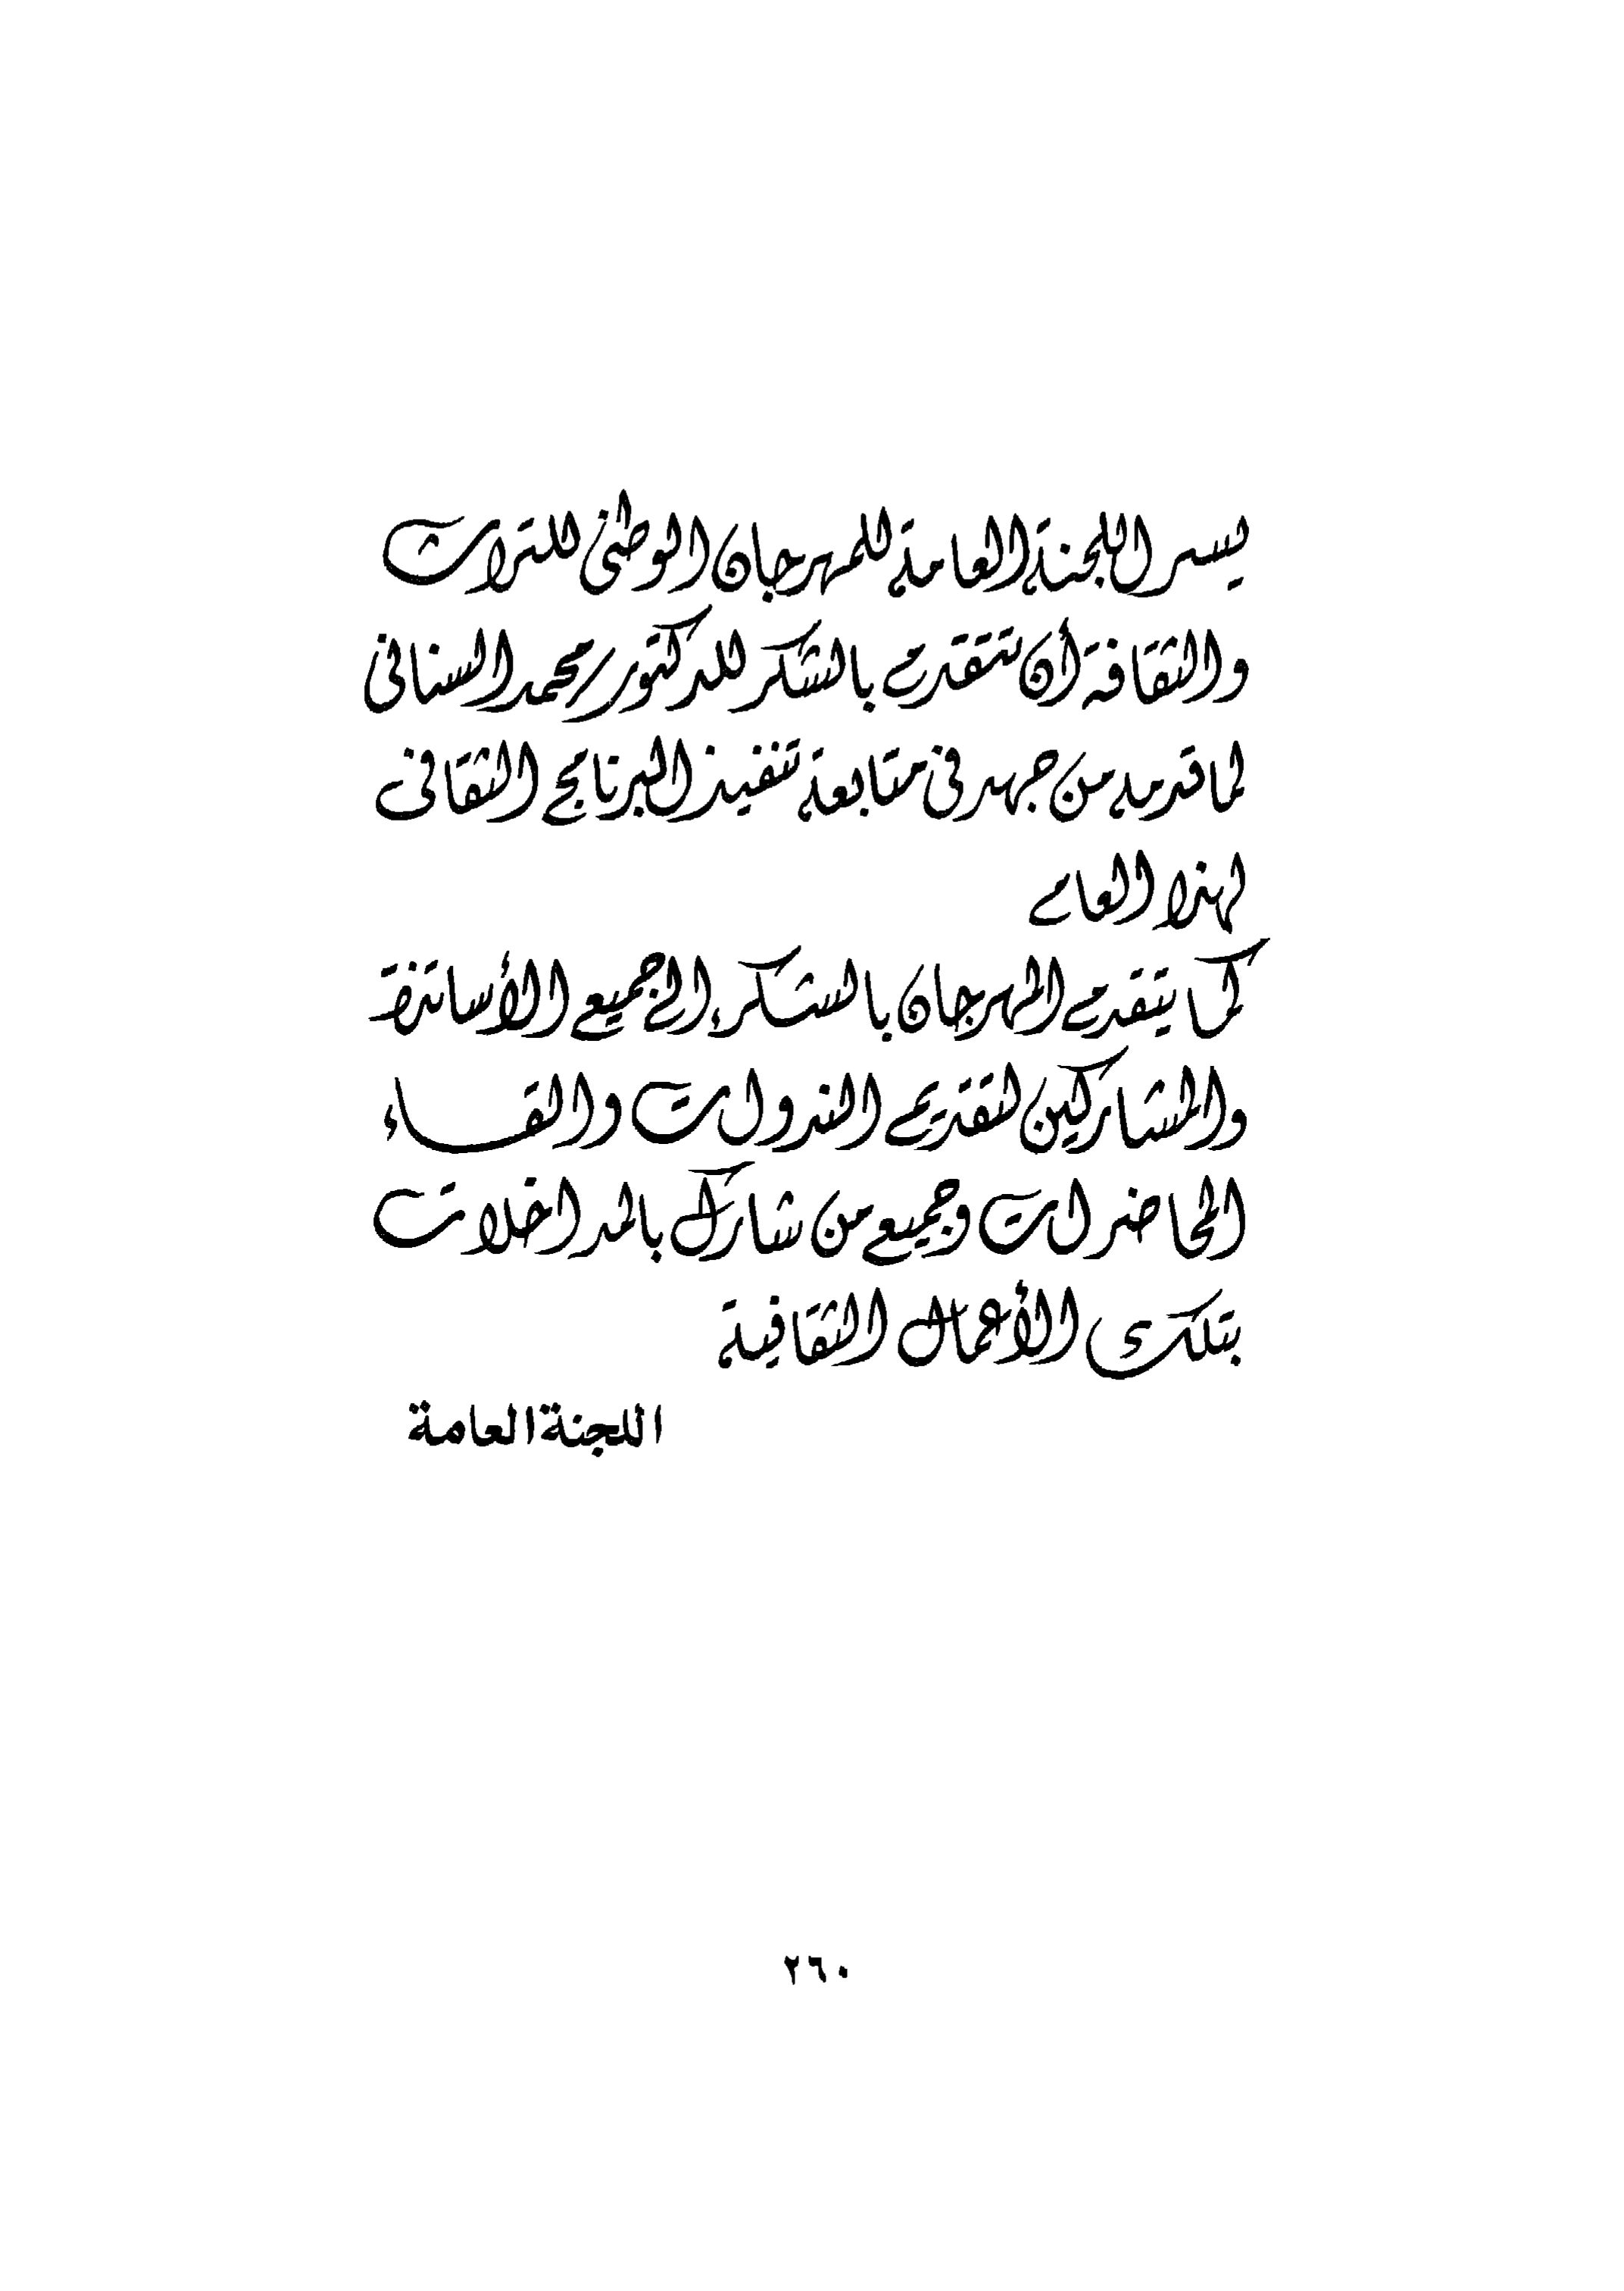 يسر اللجنة العامة للمهرجان الوطني للتراث
والثقافة أن تتقدم بالشكر للدكتور/ محمد السناني
لما قدمه من جهد في متابعة تنفيذ البرنامج الثقافي
لهذا العام
كما يتقدم المهرجان بالشكر إلى جميع الأساتذة
والمشاركين لتقديم الندوات والقاء
المحاضرات وجميع من شارك بالمداخلات
بتلك الأعمال الثقافية
اللجنة العامة
٢٦٠